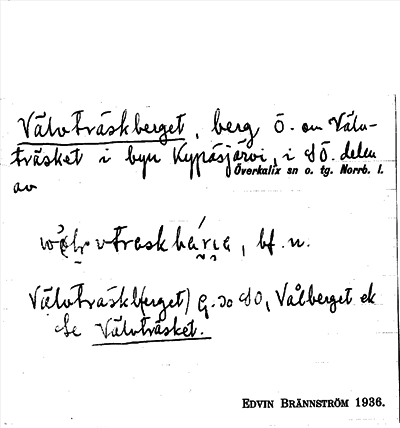 Välvträskberget, berg Ö. om Välv-
träsket i byn Kypåsjärvi, i SÖ. delen
Överkalix sn o. tg. Norrb. l.
av
bf. n.
Välvträskb(erget) G. 30 SO, Vålberget ek
Se Välvträsket.
EDVIN BRÄNNSTRÖM 1936.